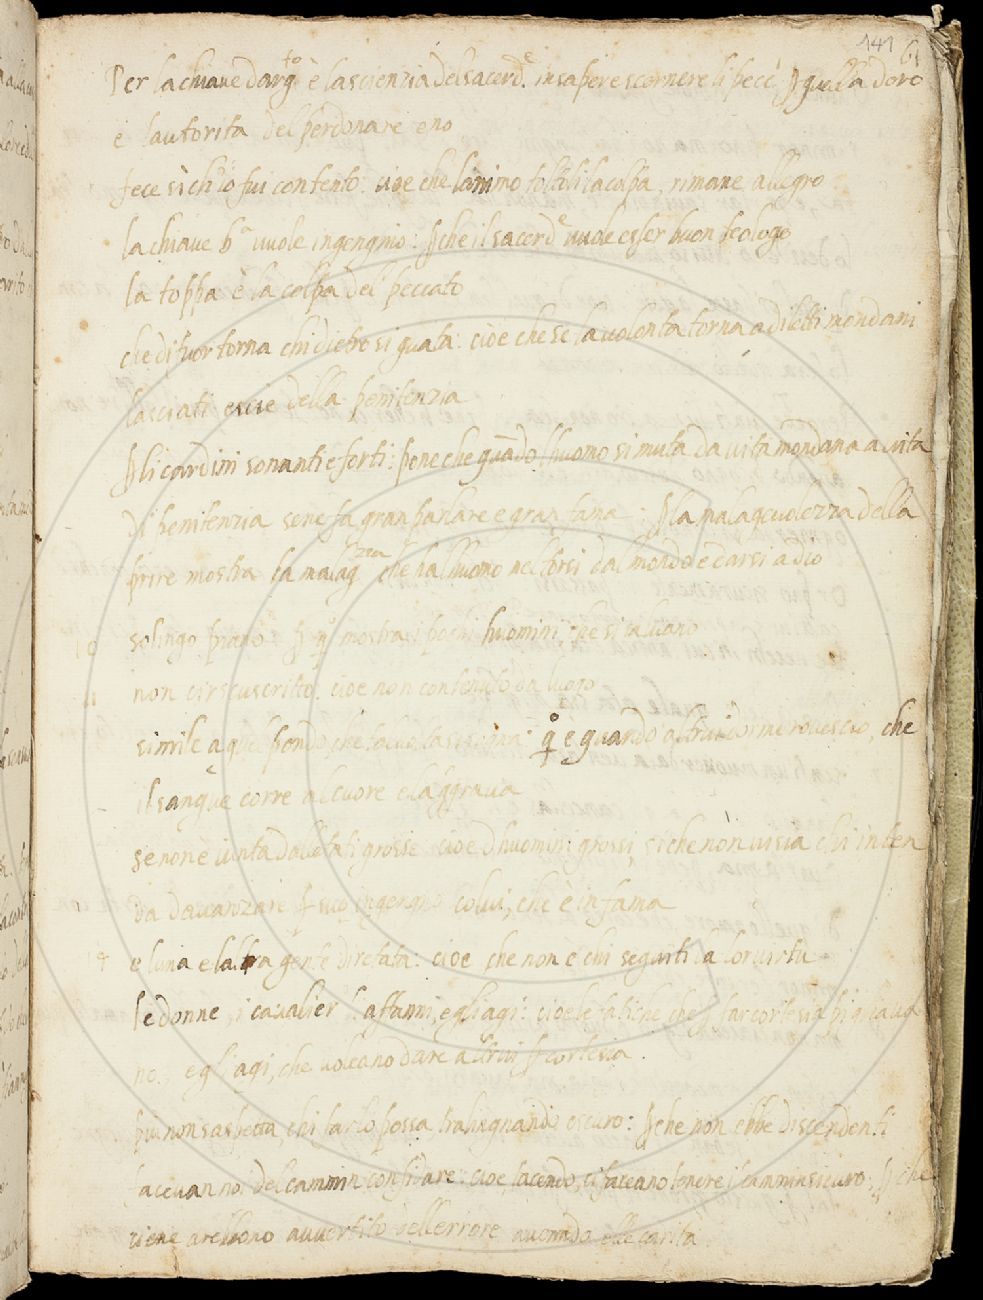 141
61
Per la chiaue d'arg.to è la scienzia del sacerd.e in sapere scernere li pecc.i p quella d'oro
e l'autorita del perdonare e no
fece sì ch'io fui contento: cioe che l'animo toltoli la colpa, rimane allegro
la chiaue b.a vuole ingengnio: p che il sacerd.e vuole esser buon teologo
la toppa è la colpa del peccato
che di fuor torna chi dietro si guata: cioè che se la uolonta torna a diletti mondani
lasciati escie della penitenzia
p li cardini sonanti e forti: pone che quãdo l'huomo si muta da uita mondana a uita
di penitenzia se ne fa gran parlare e gran fama: p la malageuolezza della
prire mostra la malag.zza che ha l'huomo nel torsi dal mondo e darsi a dio
10 solingo piano p q.o mostra i pochi huomini che si saluano
11 non circuscritto. cioe non contenuto da luogo
simile a quel che tal uolta si sogna: q.o è quando altrui dorme rouescio, che
il sangue corre al cuore e l'aggraua
se non è giunta dall'etati grosse cioe d'huomini grossi, si che non ui sia chi inten
da d'auanzare p suo ingegno colui, che è in fama
14 e luna e laltra gente diretata: cioe che non è chi seguiti la lor uirtu
le donne, i caualier l'affanni, e gli agi: cioe le fatiche che p far cortesia pigliaua
no, e gli agi, che uoleano dare altrui p cortesia.
piu non s'aspetta chi far lo possa, tralignando oscuro: p che non ebbe discendenti
faceuan noi del cammin confidare: cioe, tacendo, ci faceano tenere il cammin sicuro, p che
ci ne arebbono auuertito dell'errore auendo elle carita